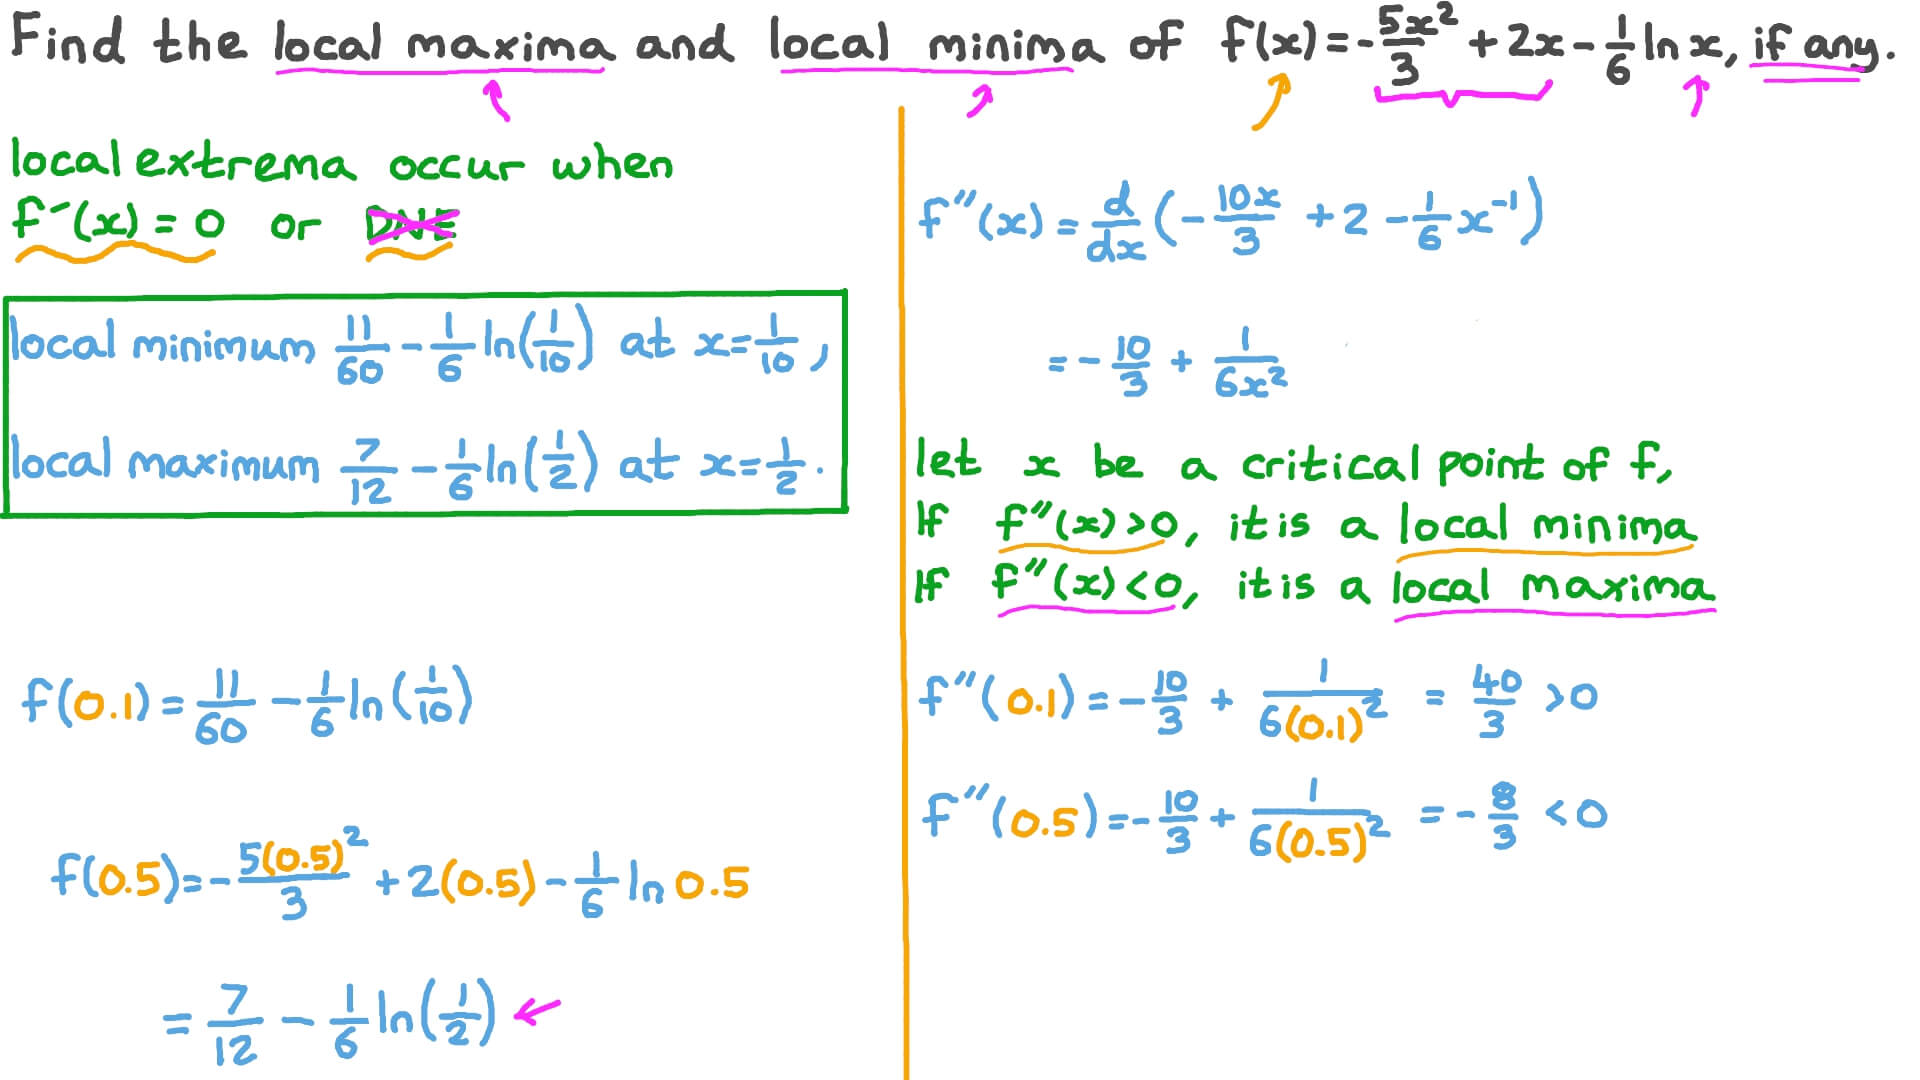 Find the local maxima and local minima of f(x)=-5x²/3+2x-1/6 ln x, if any.
local extrema occur when
f´(x)=0 or DNE
local minimum 11/60-1/6 ln(1/10) at x=1/10,
local maximum 7/12-1/6 ln(1/2) at x=1/2.
f(0.1)=11/60-1/6 ln(1/10)
f(0.5)=-5(0.5)²/3+2(0.5)-1/6 ln 0.5
=7/12-1/6 ln(1/2)
f″(x)=d/dx(-10x/3+2-1/6 x⁻¹)
=-10/3+1/6x²
let x be a critical point of f,
If f″(x)>0, it is a local minima
If f″(x)<0, it is a local maxima
f″(0.1)=-10/3+1/6(0.1)²=40/3>0
f″(0.5)=-10/3+1/6(0.5)²=-8/3<0